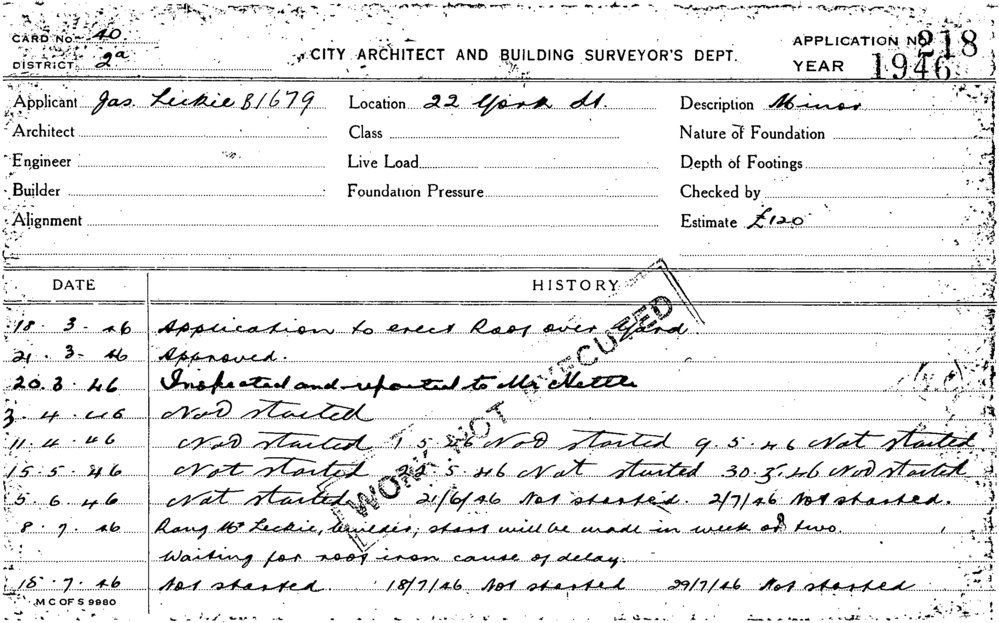 CARD No 40
DISTRICT 2a
CITY ARCHITECT AND BUILDING SURVEYOR'S DEPT.
APPLICATION No 218
YEAR 1946
Applicant Jas. Leckie B1679 Location 22 York St. Description Minor
Architect Class Nature of Foundation
Engineer Live Load Depth of Footings
Builder Foundation Pressure Checked by
Alignment Estimate £120
DATE HISTORY
18. 3. 46 Application to erect Roof over Yard
21. 3. 46 Approved.
20. 3. 46 Inspected and reported to Mr Nettle
3. 4. 46 Not started
11. 4. 46 Not started 1 5. 46 Not started 9. 5. 46 Not started
15. 5. 46 Not started 22. 5. 46 Not started 30. 5. 46 Not started
5. 6. 46 Not started 21/6/46 Not started. 2/7/46 Not started.
8. 7. 46 Rang Mr Leckie, builder, start will be made in week or two.
Waiting for roof iron cause of delay.
15. 7. 46 Not started. 18/7/46 Not started 29/7/46 Not started
WORK NOT EXECUTED
M C OF S 9980